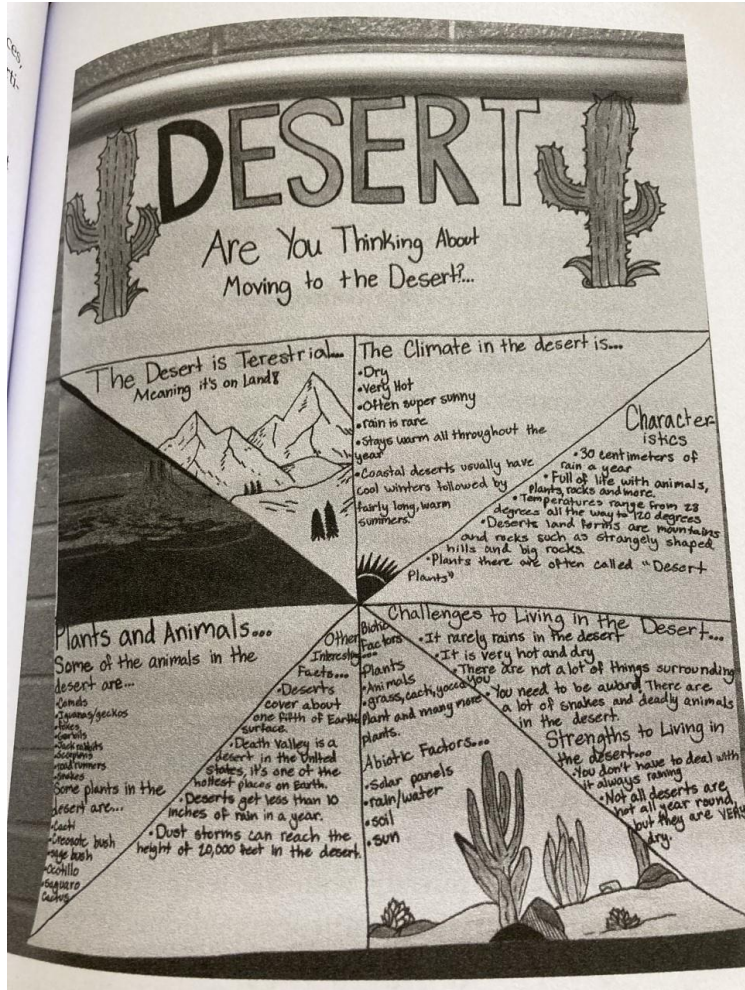 ces,
rti-
DESERT
Are You Thinking About
Moving to the Desert?...
The Desert is Terestrial...
Meaning it's on Land!
The Climate in the desert is...
•Dry
•Very Hot
•Often super sunny
•rain is rare
•Stays warm all throughout the
year
•Coastal deserts usually have
cool winters followed by
fairly long, warm
summers.
Character-
istics
•30 centimeters of
rain a year
•Full of life with animals,
plants, rocks and more.
•Temperatures range from 28
degrees all the way to 120 degrees
•Deserts land forms are mountains
and rocks such as strangely shaped
hills and big rocks.
•Plants there are often called "Desert
Plants"
Plants and Animals...
Some of the animals in the
desert are...
•Camels
•Iguanas/geckos
•Gerbils
•Jack rabbits
•Scorpions
•roadrunners
•Snakes
Some plants in the
desert are...
•Cacti
•Creosote bush
•sage bush
•Ocotillo
•Saguaro
Cactus
Other
Interesting
Facts...
•Deserts
cover about
one fifth of Earth
surface.
•Death Valley is a
desert in the United
States, it's one of the
hottest places on Earth.
•Deserts get less than 10
inches of rain in a year.
•Dust storms can reach the
height of 20,000 feet in the desert.
Biotic
Factors
•Plants
•Animals
•grass, cacti, yocca
plant and many more
plants.
Abiotic Factors...
•Solar panels
•rain/water
•soil
•sun
Challenges to Living in the Desert...
•It rarely rains in the desert
•It is very hot and dry
•There are not a lot of things surrounding
you
•You need to be award There are
a lot of snakes and deadly animals
in the desert.
Strengths to Living in
the desert...
•You don't have to deal with
it always raining
•Not all deserts are
hot all year round
but they are VERY
dry.